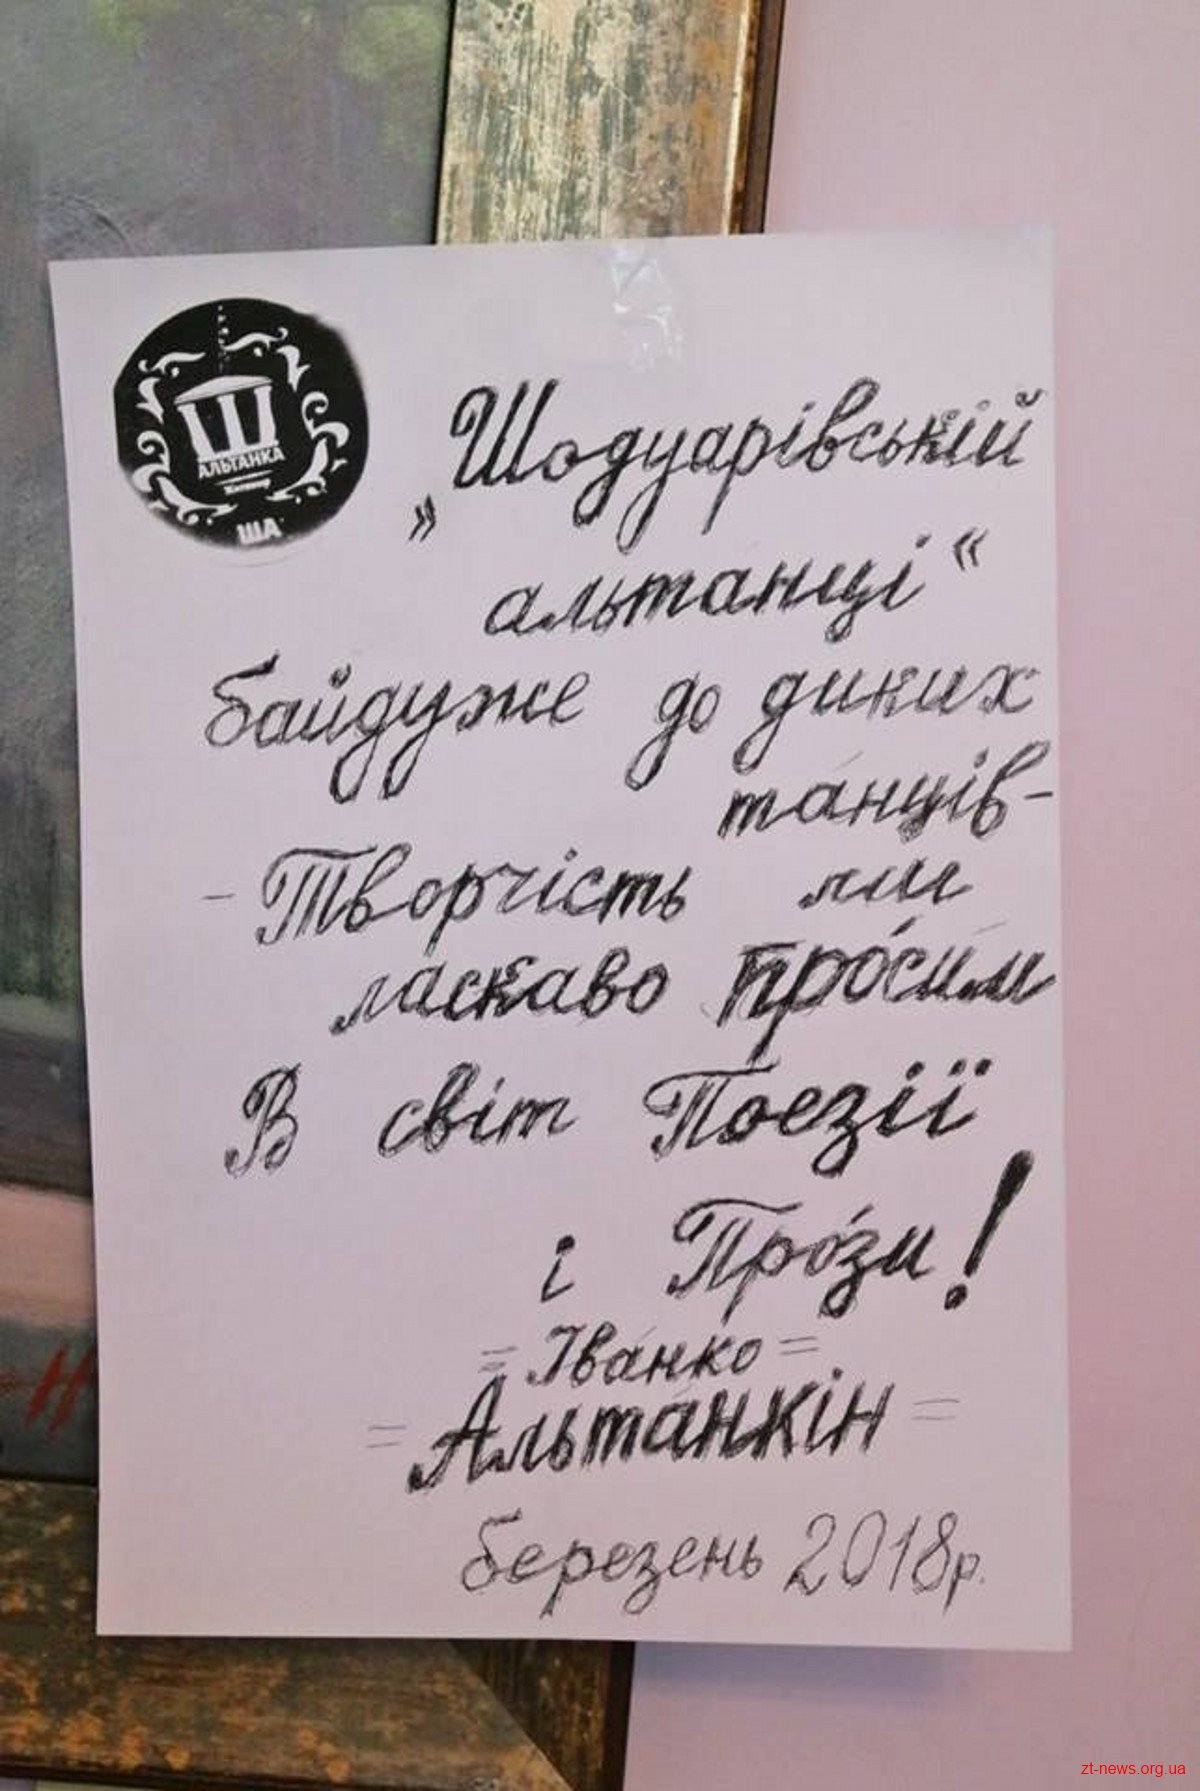 Ш
АЛЬТАНКА
ША
„Шодуарівській
альтанці“
байдуже до диких
та́нців-
-Творчість ми
ласкаво про́сим
В світ Поезії
і Про́зи!
=Іва́нко=
=Альта́нкін=
березень 2018р.
zt-news.org.ua